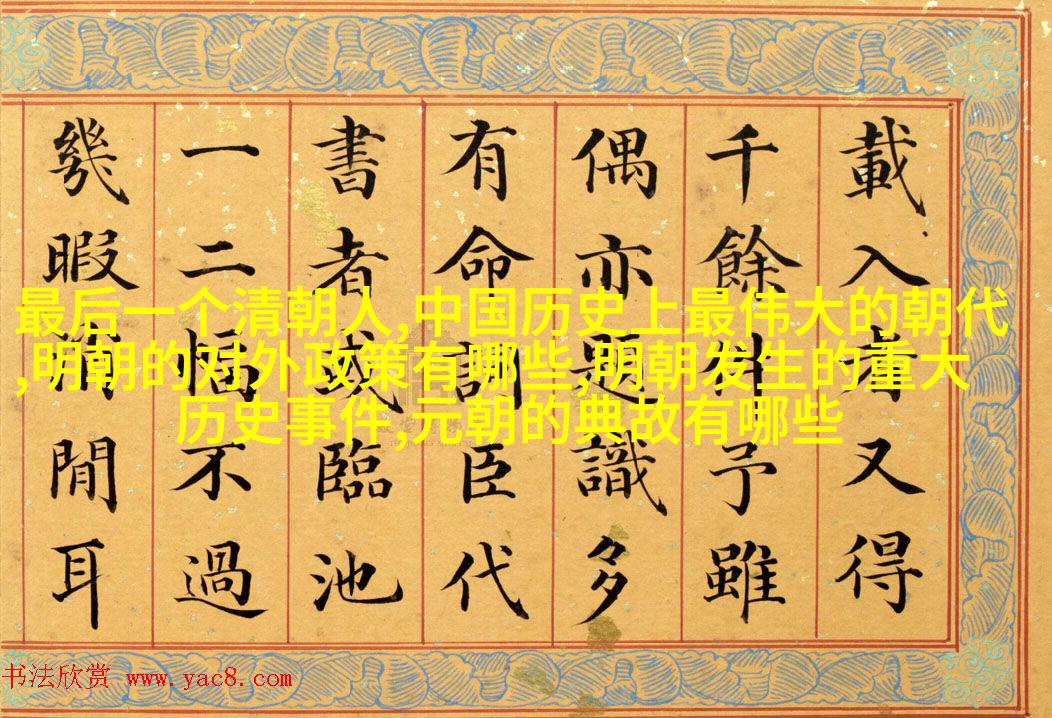 載入者又得
千餘件予雖
偶亦題識多
有命詞臣代
書者或臨池
一二幅不過
幾暇消閒耳
最后一个清朝人,中国历史上最伟大的朝代
,明朝的对外政策有哪些,明朝发生的重大
历史事件,元朝的典故有哪些
书法欣赏 www.yac8.com